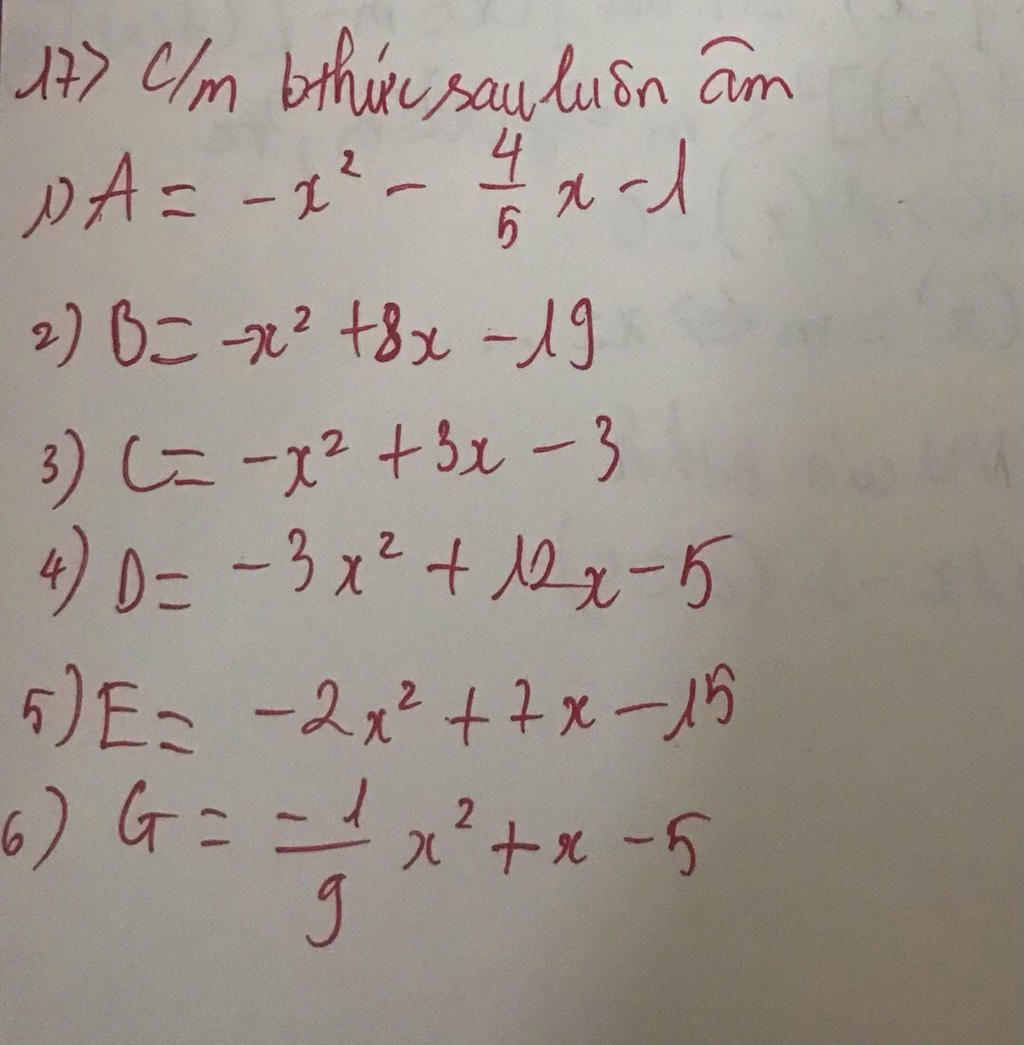 17) C/m bthức sau luôn âm
1) A = -x² - 4/5 x - 1
2) B = -x² + 8x - 19
3) C = -x² + 3x - 3
4) D = -3x² + 12x - 5
5) E = -2x² + 7x - 15
6) G = -1/9 x² + x - 5